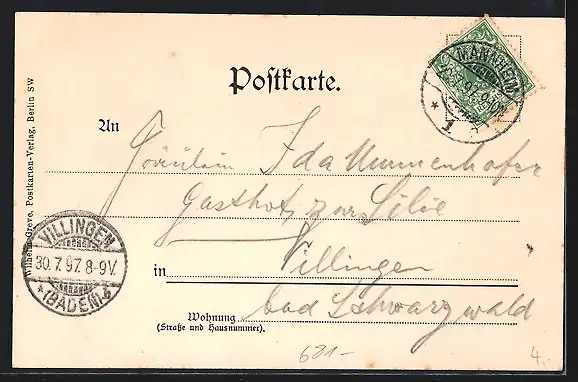 Postkarte.
MANNHEIM
1.
An
Fräulein Ida Ummenhofer
Gasthof zur Lilie
in Villingen
bad Schwarzwald
Wohnung
(Straße und Hausnummer).
VILLINGEN
30.7.97.8-9V.
* (BADEN) *
Wilhelm Greve, Postkarten-Verlag, Berlin SW
681-
4.-